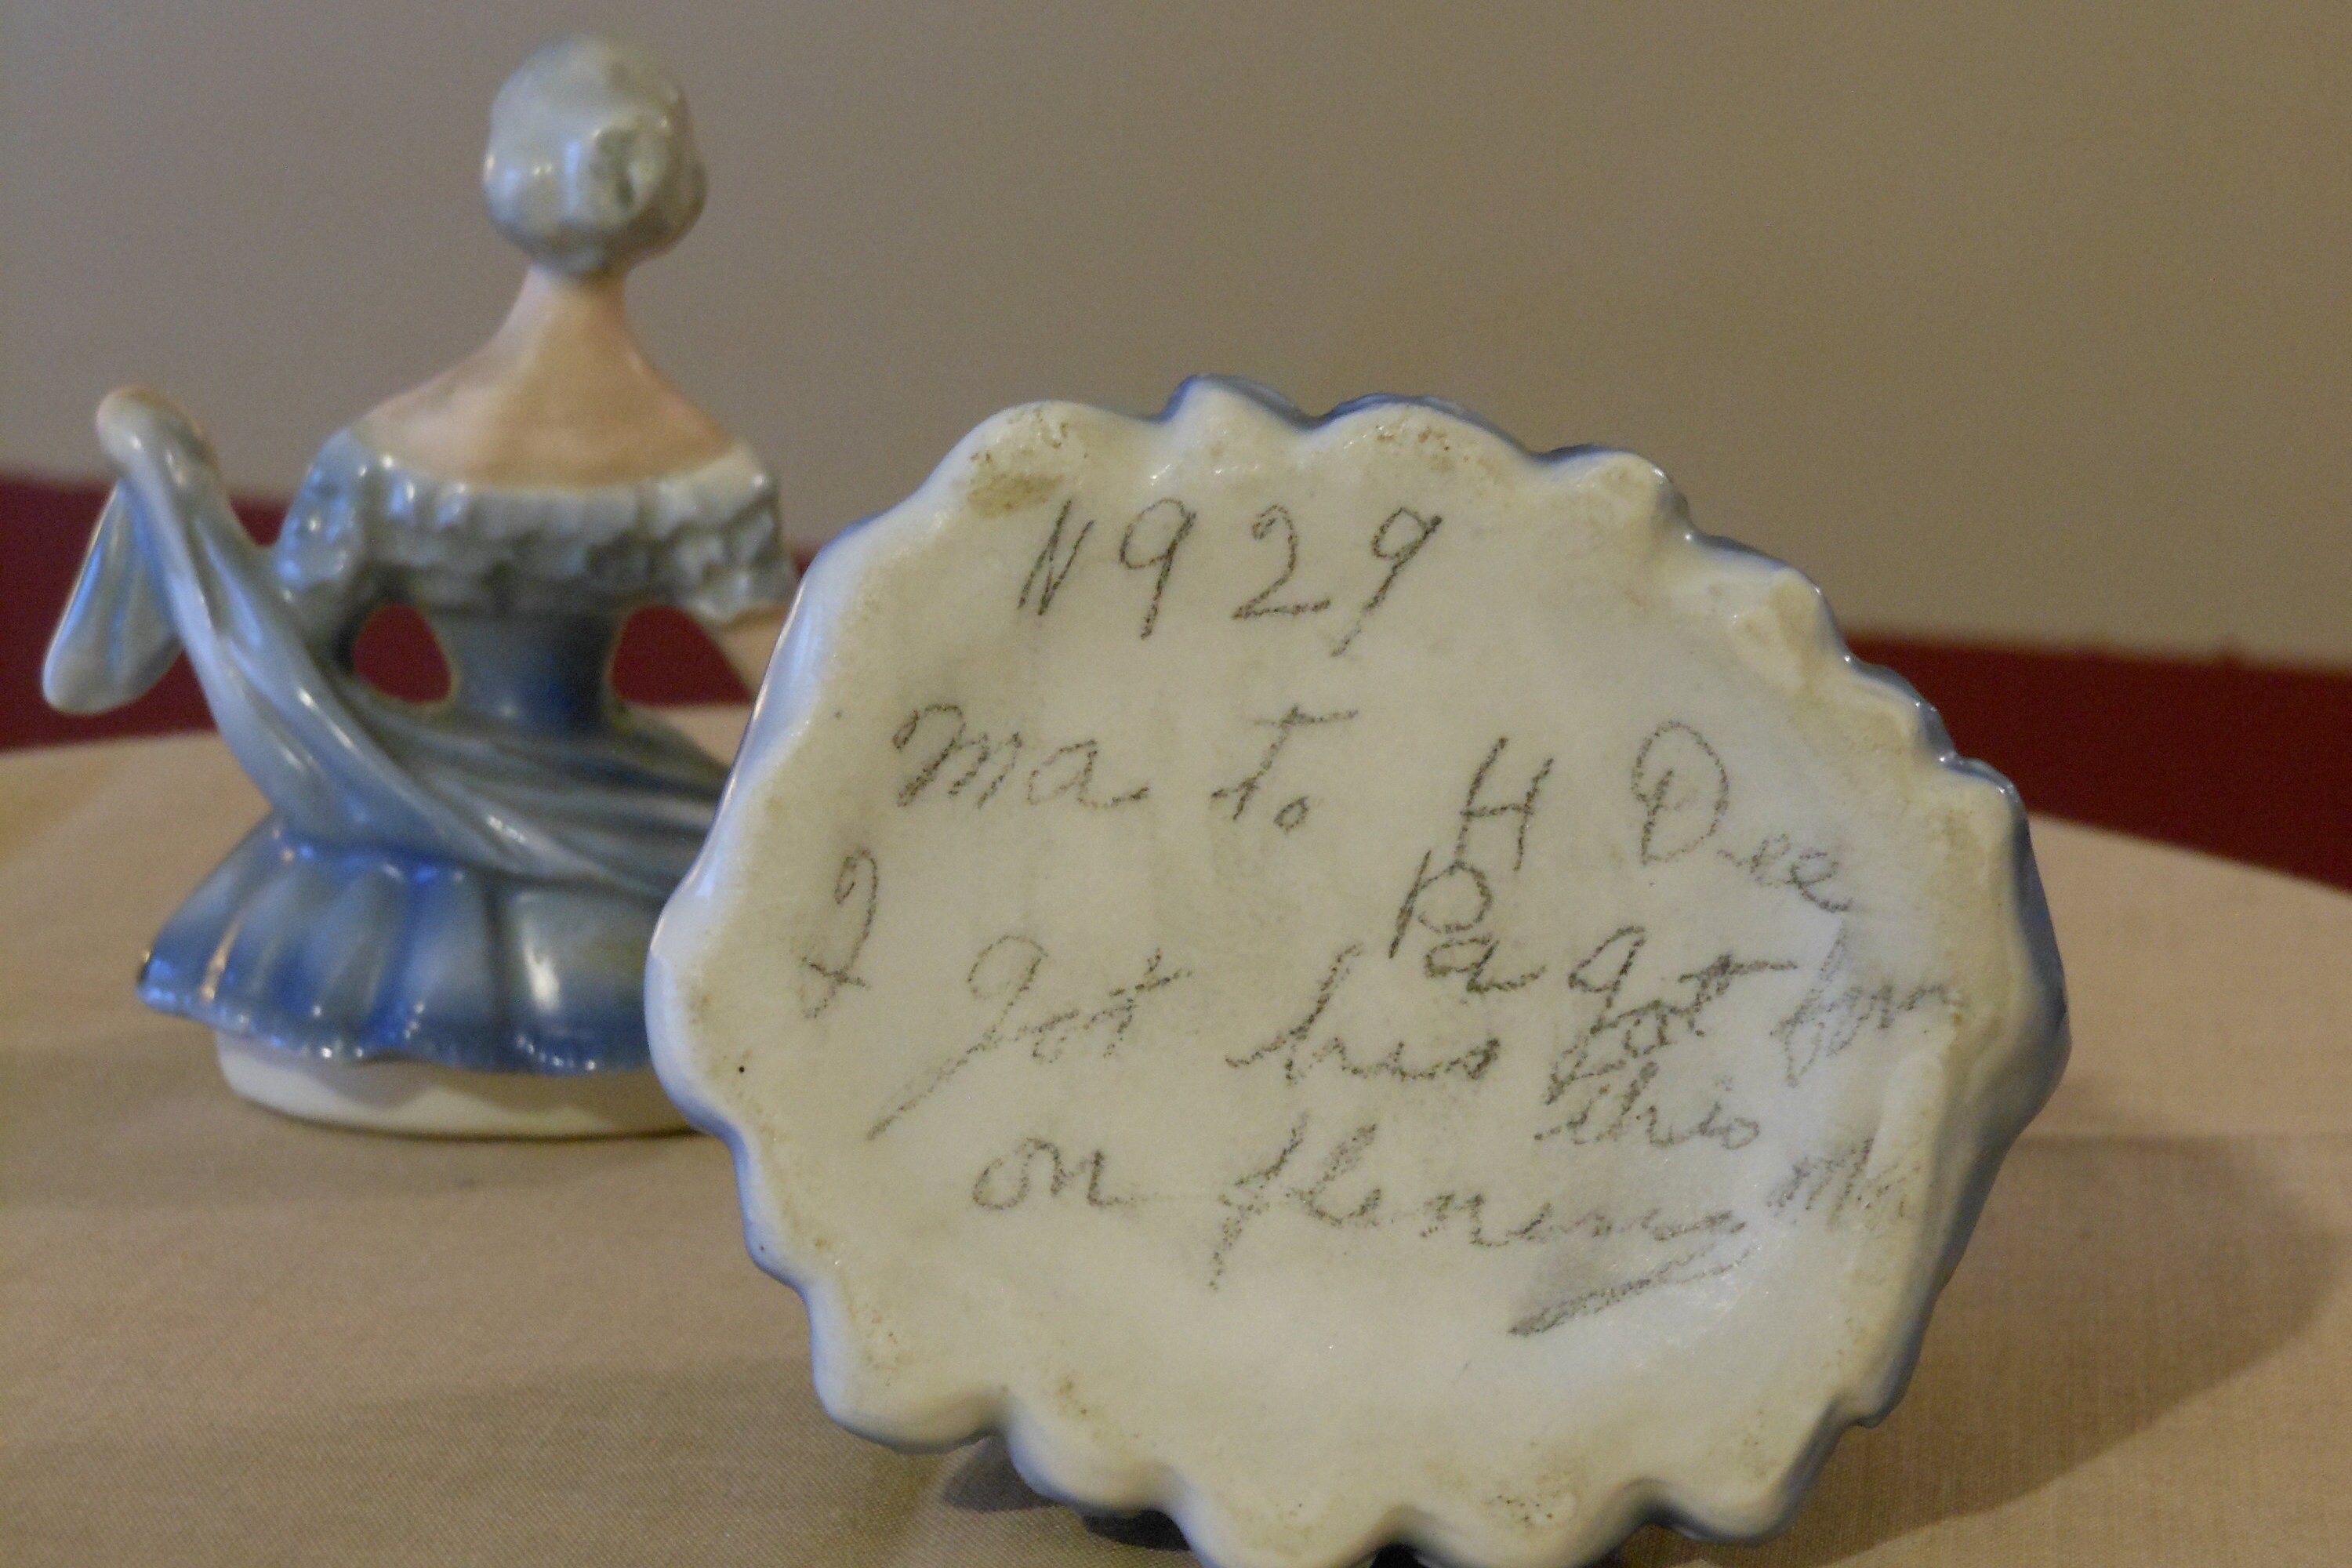 N929
Ma to H Dee
Pa got for
I got his
this Ma
on